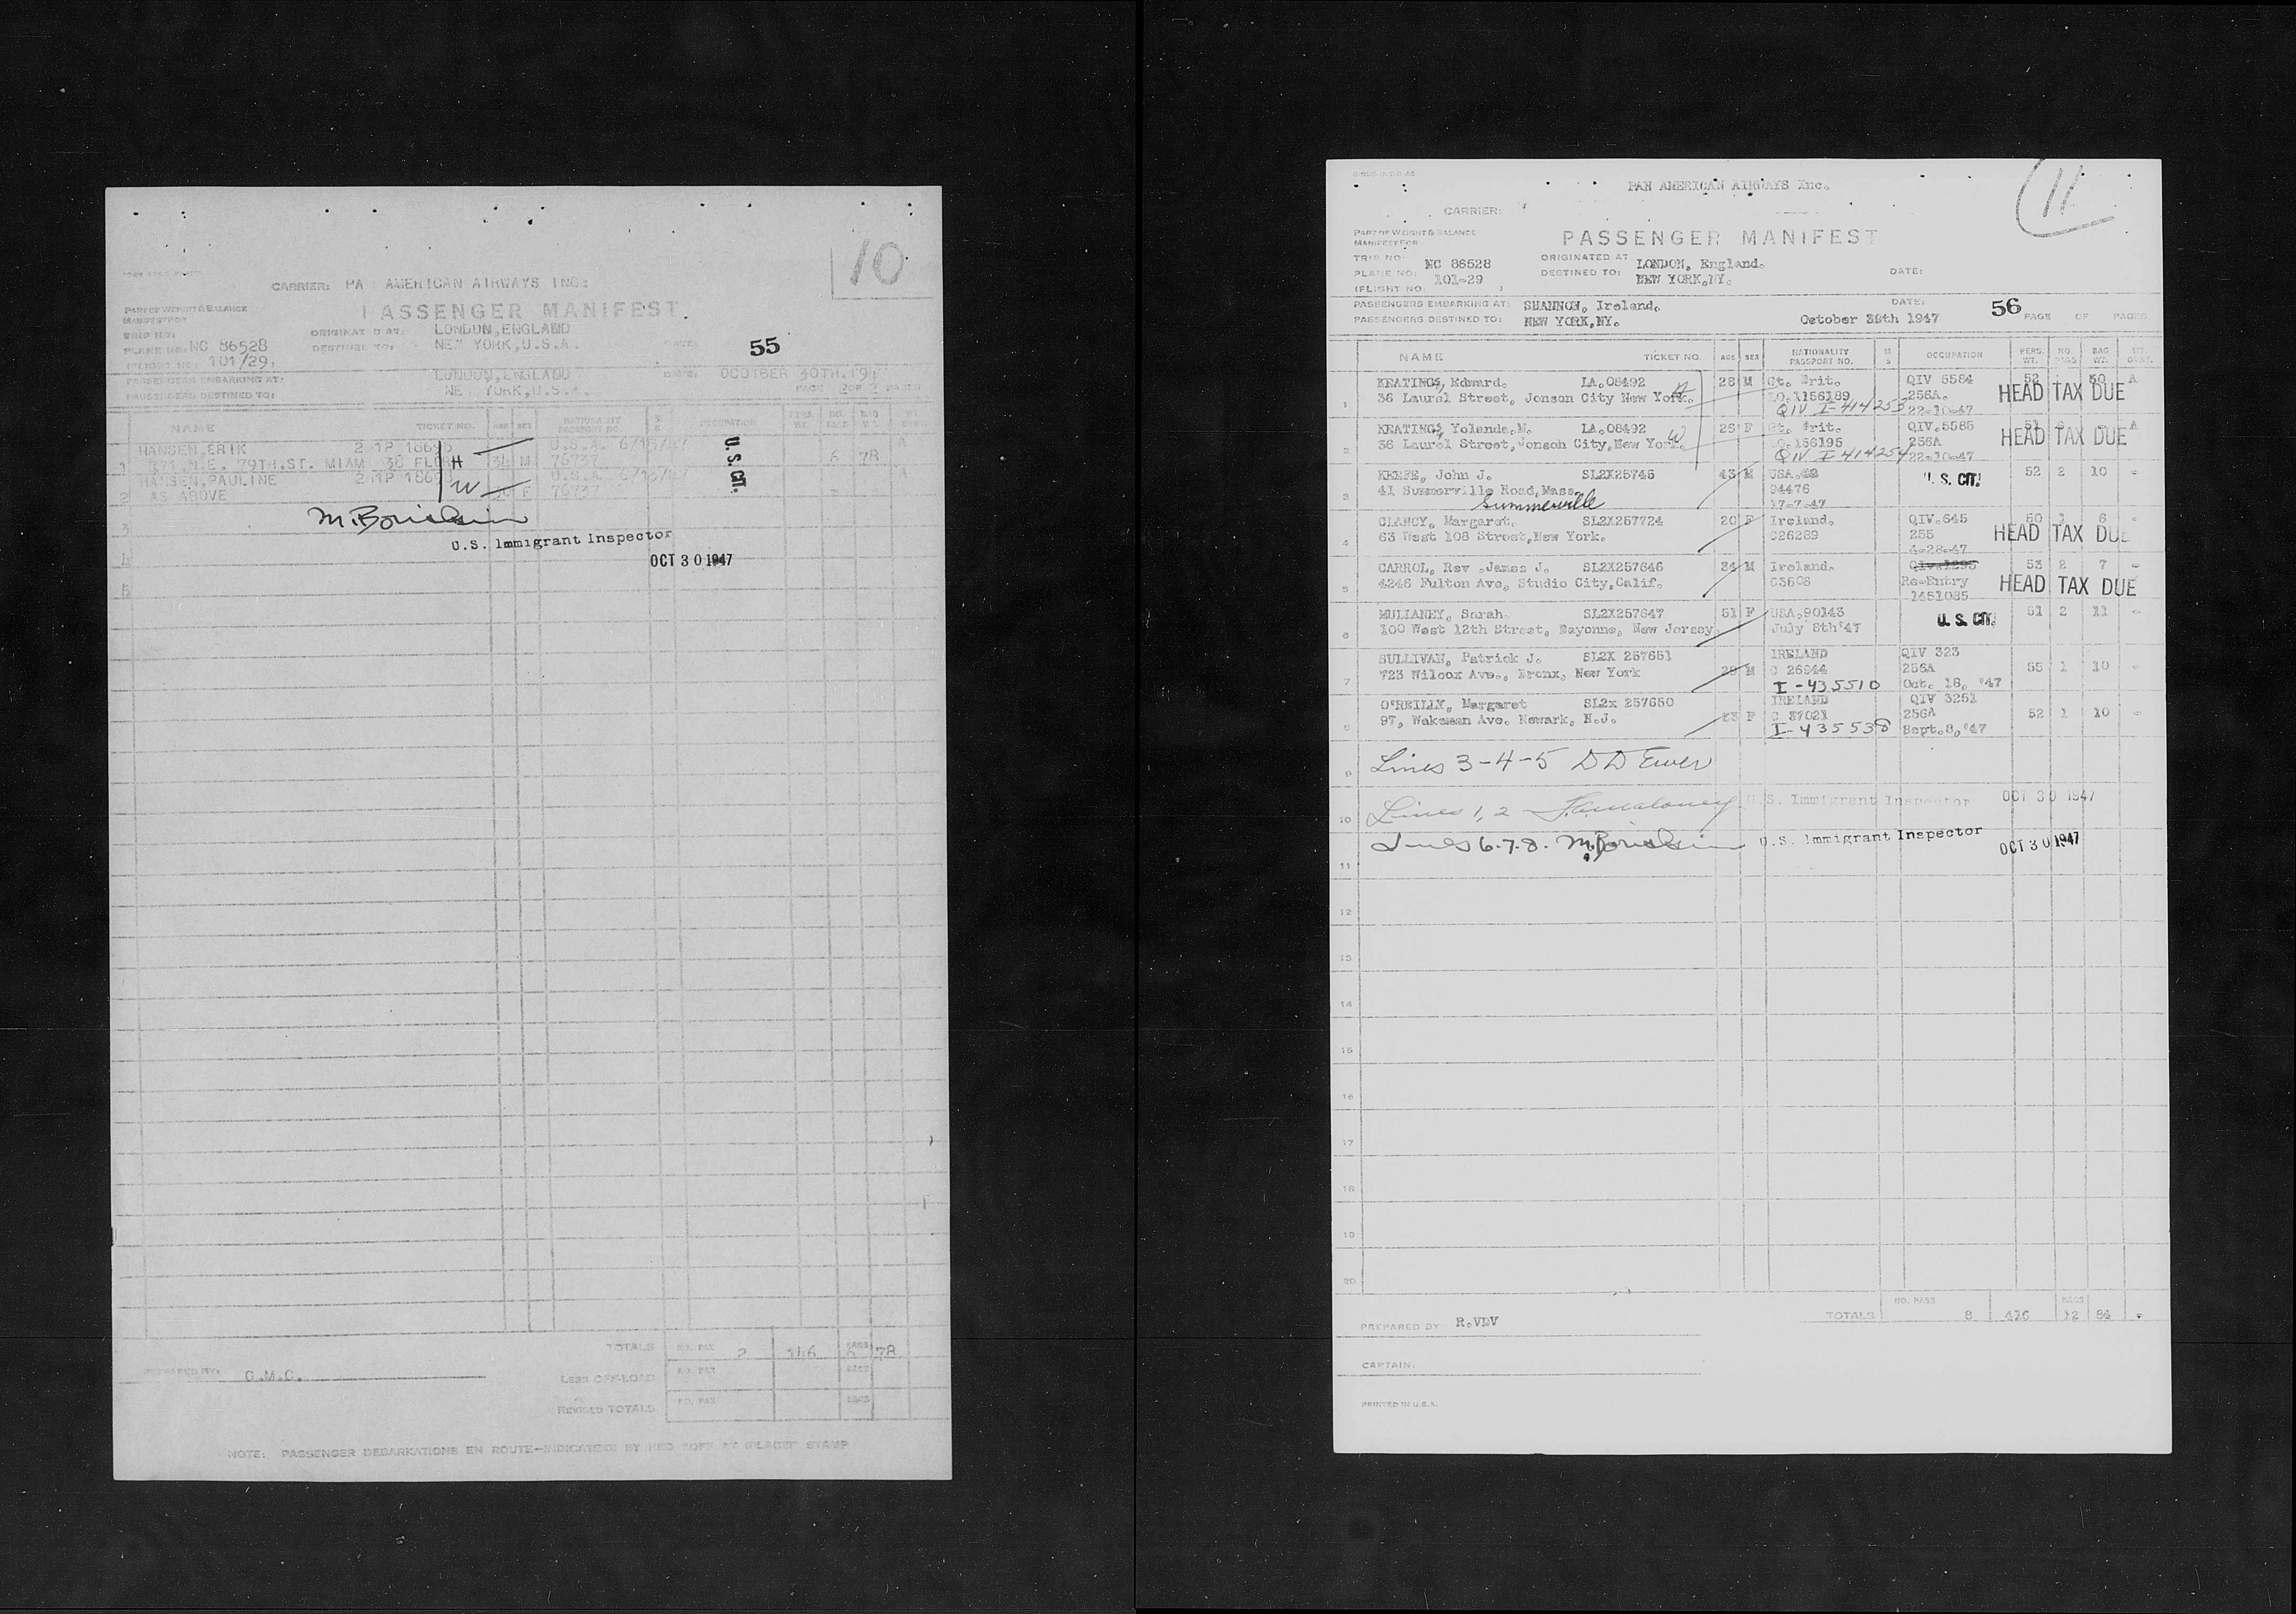 10
CARRIER: PA AMERICAN AIRWAYS INC.
PART OF WEIGHT & BALANCE
MANIFEST FOR
PASSENGER MANIFEST.
TRIP NO:
ORIGINATED AT: LONDON,ENGLAND
PLANE NO: NC 86528
DESTINED TO: NEW YORK,U.S.A.
55
FLIGHT NO: 101/29.
PASSENGERS EMBARKING AT: LONDON,ENGLAND
DATE: OCOTBER 30TH.194
PASSENGERS DESTINED TO: NE YORK,U.S.A.
PAGE 2 OF 2 PAGES
NAME TICKET NO. AGE SEX NATIONALITY PASSPORT NO. OCCUPATION PERS. WT. NO. BAGS BAG WT.
HANSEN,ERIK U.S.A. 6/15/47 U.S. CIT. A
1 N.E. 79TH.ST. MIAM 38 FLOR H M 76737 6 78
HANSEN,PAULINE U.S.A. 6/15/47 A
2 AS ABOVE W F 76737
3
U.S. Immigrant Inspector
4
OCT 30 1947
5
TOTALS NO. PAX 2 146 BAGS 6 78
PREPARED BY: G.M.C.
LESS OFF-LOAD NO. PAX BAGS
REVISED TOTALS NO. PAX BAGS
NOTE: PASSENGER DEBARKATIONS EN ROUTE-INDICATED BY RED "OFF AT (PLACE)" STAMP
11
PAN AMERICAN AIRWAYS Inc.
CARRIER:
PART OF WEIGHT & BALANCE
MANIFEST FOR
PASSENGER MANIFEST
TRIP NO: NC 86528 ORIGINATED AT LONDON, England.
PLANE NO: 101-29 DESTINED TO: NEW YORK,NY. DATE:
(FLIGHT NO: )
PASSENGERS EMBARKING AT: SHANNON, Ireland. DATE: 56
PASSENGERS DESTINED TO: NEW YORK,NY. October 30th 1947 PAGE OF PAGES
NAME TICKET NO. AGE SEX NATIONALITY PASSPORT NO. M S OCCUPATION PERS. WT. NO. BAGS BAG WT. WT. OVER.
KEATING, Edward. LA.08492 H 28 M Gt. Brit. QIV 5584 52 50 A
1 36 Laurel Street, Jonson City New York. LO.1156189 256A. HEAD TAX DUE
QIV I-414253 22-10-47
KEATING, Yolande.M. LA.08492 W 25 F Gt. Brit. QIV.5585 51 - A
2 36 Laurel Street,Jonson City,New York. LO.156195 256A HEAD TAX DUE
QIV I-414254 22-10-47
KEEFE, John J. SL2X25745 43 M USA. U. S. CIT. 52 2 10 -
3 41 Summorville Road,Mass. 94476
Summerville 17-7-47
CLANCY, Margaret. SL2X257724 20 F Ireland. QIV.645 50 1 6 -
4 63 West 108 Street,New York. C26289 255 HEAD TAX DUE
4-28-47
CARROL, Rev .James J. SL2X257646 34 M Ireland. QIV.1295 53 2 7 -
5 4246 Fulton Ave, Studio City,Calif. C3608 Re-Entry HEAD TAX DUE
1451085
MULLANEY, Sarah. SL2X257647 51 F USA.90143 U. S. CIT. 51 2 11 -
6 100 West 12th Street, Bayonne, New Jersey. July 8th'47
SULLIVAN, Patrick J. SL2X 257651 IRELAND QIV 323
7 723 Wilcox Ave., Bronx, New York 29 M C 26944 256A 55 1 10 -
I-435510 Oct. 18, '47
O'REILLY, Margaret SL2x 257650 IRELAND QIV 3251
8 97, Wakeman Ave. Newark, N.J. F C 37021 256A 52 1 10 -
I-435538 Sept.8,'47
9 Lines 3-4-5 D D Ewer
10 Lines 1, 2 U.S. Immigrant Inspector OCT 30 1947
11 Lines 6.7.8. U.S. Immigrant Inspector OCT 30 1947
12
13
14
15
16
17
18
19
20
TOTALS NO. PASS 8 416 BAGS 12 84 -
PREPARED BY R.VDV
CAPTAIN:
PRINTED IN U.S.A.